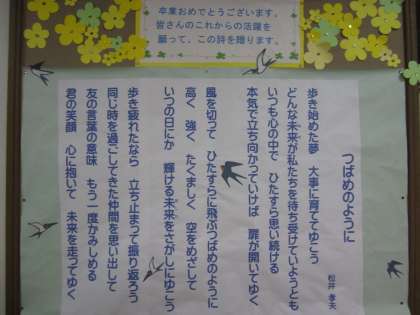 卒業おめでとうございます。
皆さんのこれからの活躍を
願って、この詩を贈ります。
つばめのように
松井 孝夫
歩き始めた夢 大事に育ててゆこう
どんな未来が私たちを待ち受けていようとも
いつも心の中で ひたすら思い続ける
本気で立ち向かっていけば 扉が開いてゆく
風を切って ひたすらに飛ぶつばめのように
高く 強く たくましく 空をめざして
いつの日にか 輝ける未来をさがしにゆこう
歩き疲れたなら 立ち止まって振り返ろう
同じ時を過ごしてきた仲間を思い出して
友の言葉の意味 もう一度かみしめる
君の笑顔 心に抱いて 未来を走ってゆく